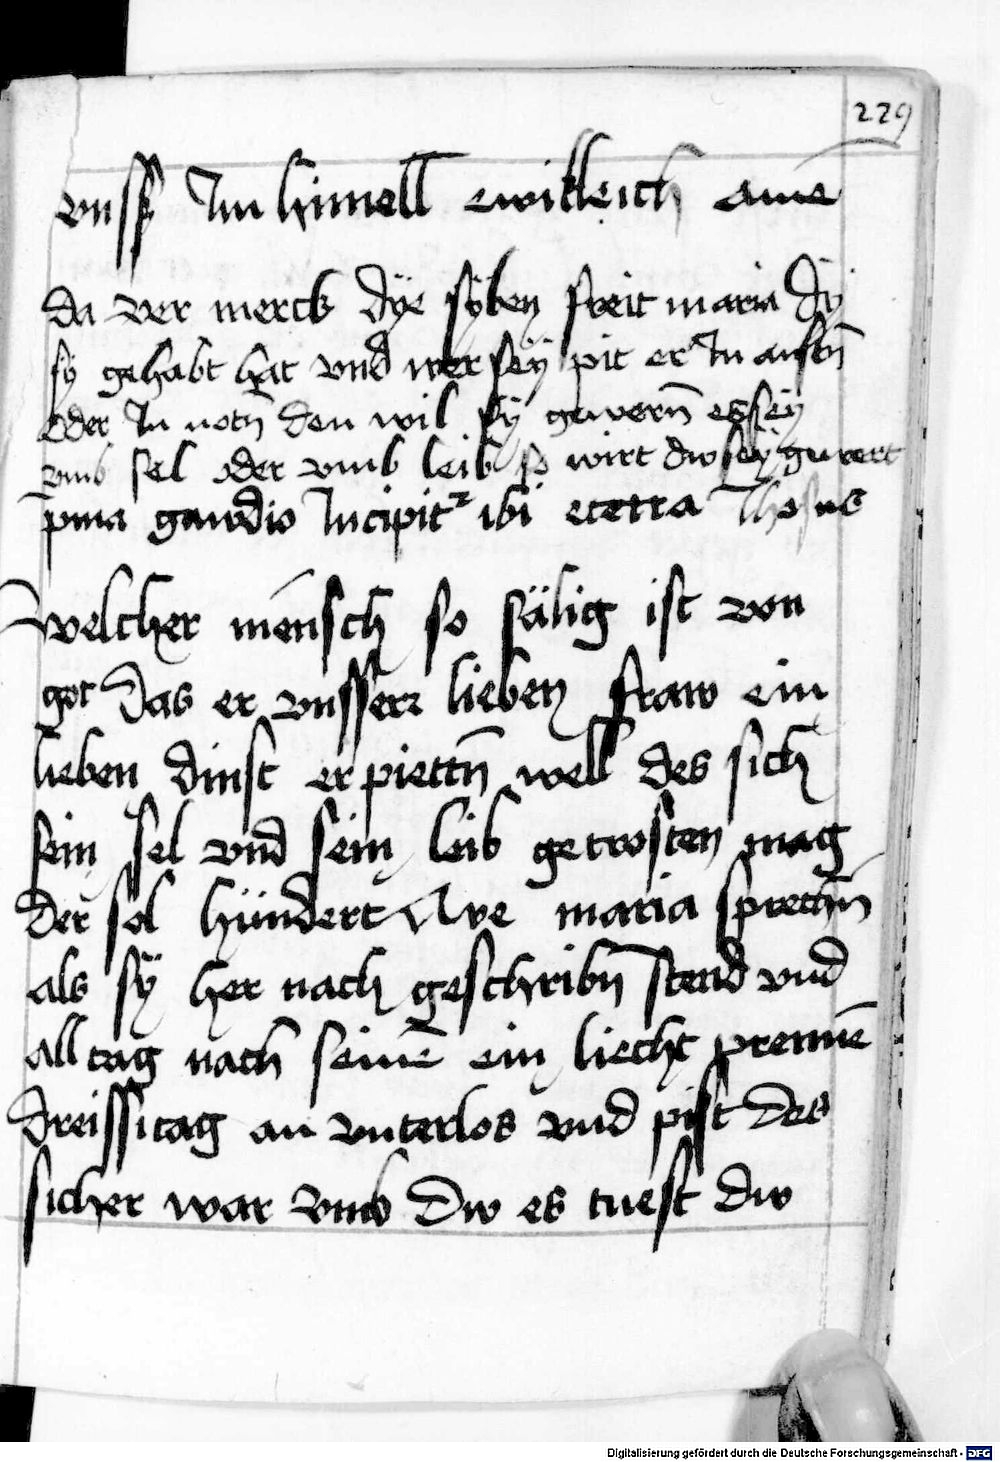 229
vnss Im himell ewikleich amē
Da ver merck dÿe sÿben freit maria dÿ
sÿ gehabt hat vnd wer seÿ pit er In
oder In notn̄ den wil sÿ gewern̄ es seÿ
vmb sel oder vmb leib so wirt dw seÿ gewert
pma gawdio Incipit ibi etetra
Welcher mensch so sälig ist von
got Das er vnsserr lieben fraw ein
lieben dinst erpiettn̄ well des sich
sein sel vnd sein leib getrosten mag
der sol hündert Ave maria sprechn̄
als sÿ her nach geschribn̄ stend vnd
all tag nach seinē ein liecht prennē
dreissitag an vnterlos vnd pist des
sicher war vmb Dw es tuest dw
Digitalisierung gefördert durch die Deutsche Forschungsgemeinschaft - DFG